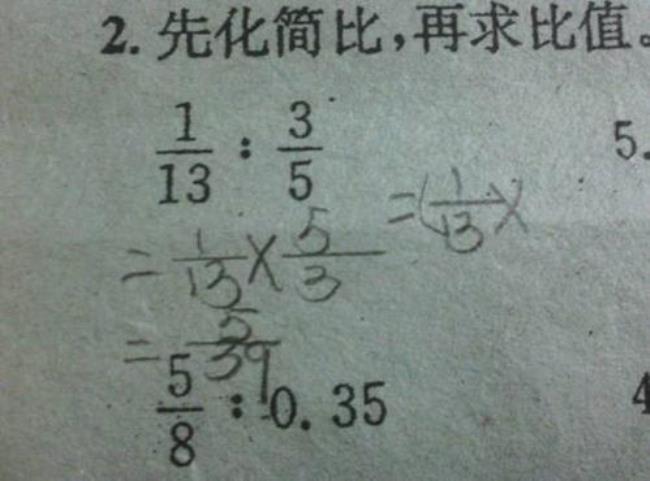 2. 先化简比,再求比值。
1/13 : 3/5
5.
= (1/13 ×
= 1/13 × 5/3
= 5/39
5/8 : 0.35
4